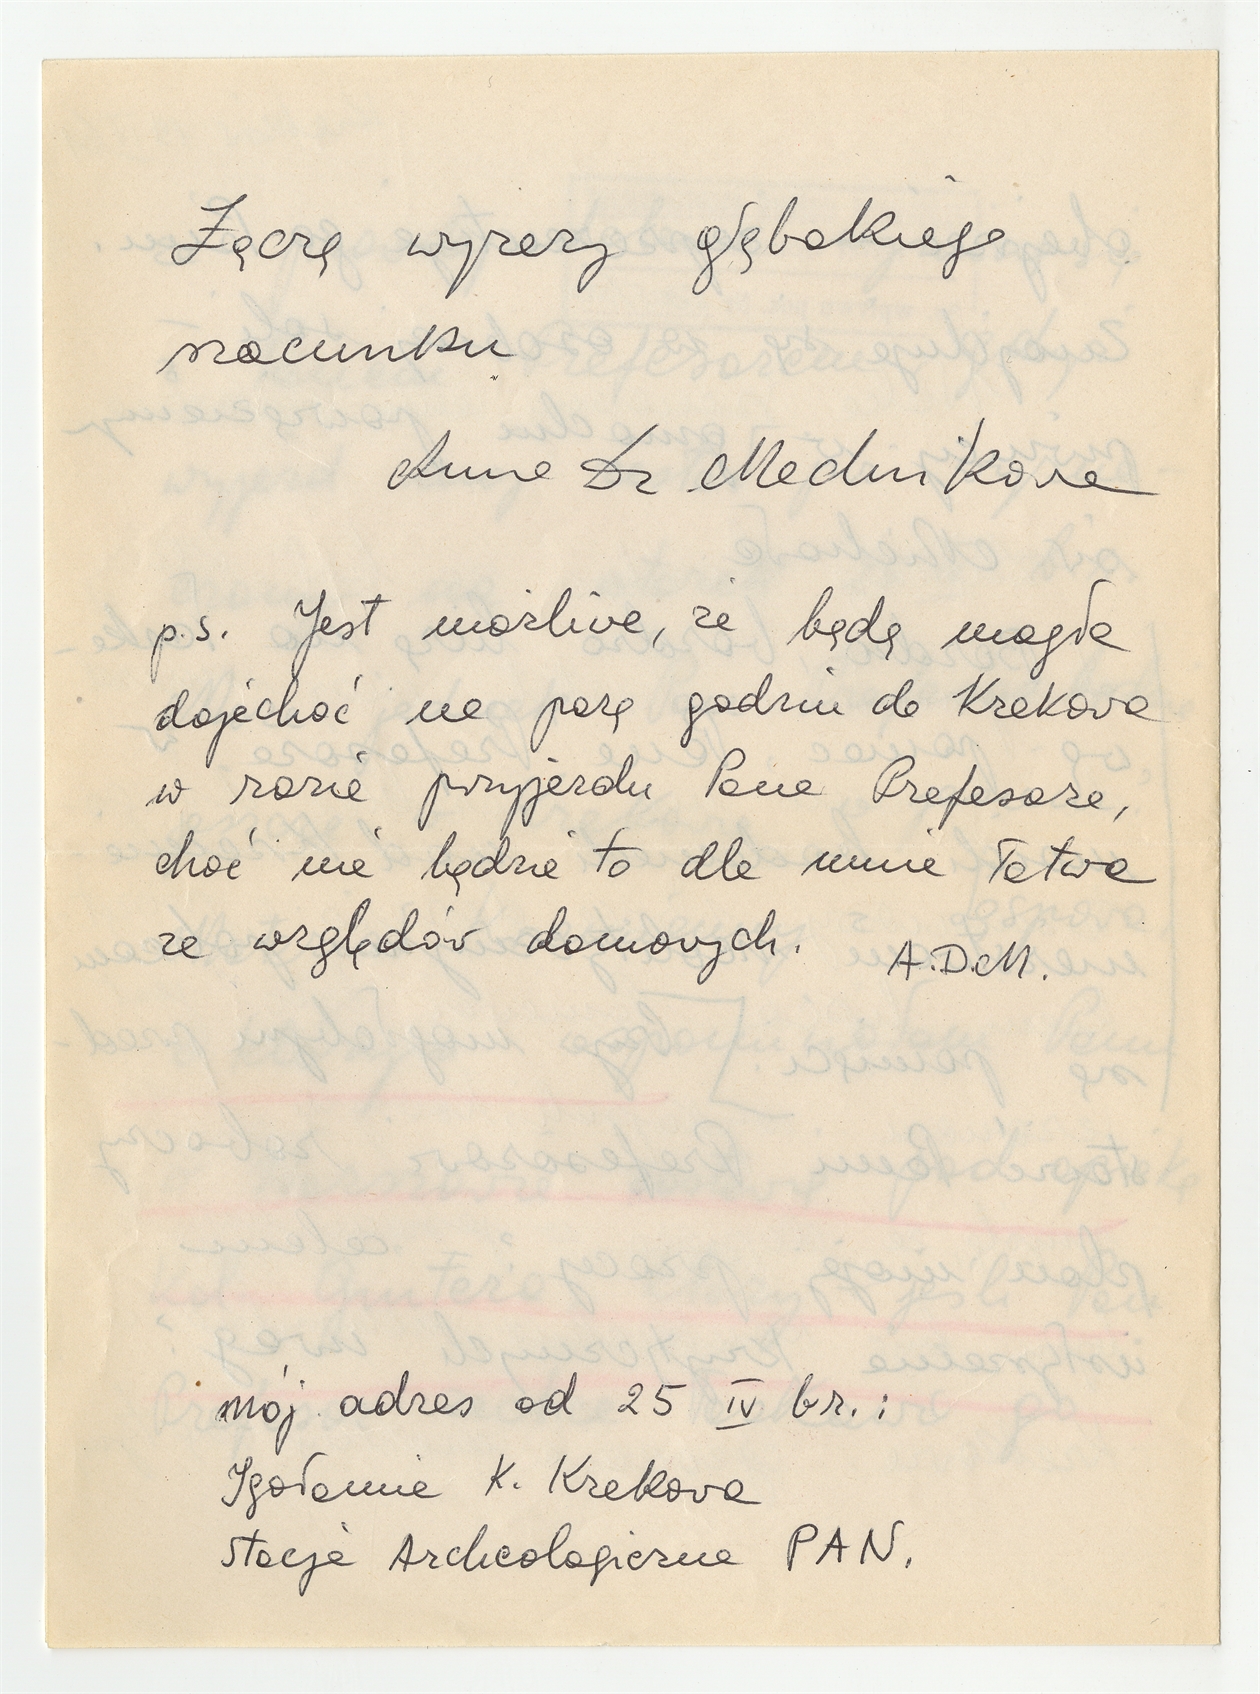 Łączę wyrazy głębokiego
szacunku
Anna Dr Mednikova
p.s. Jest możlive, że będę mogła
dojechać na parę godzin do Krakova
w razie przyjazdu Pana Profesora,
choć nie będzie to dla mnie łatwe
ze względóv domovych. A.D.M.
mój adres od 25 IV br.:
Igołomia K. Krakova
Stacja Archeologiczna PAN.